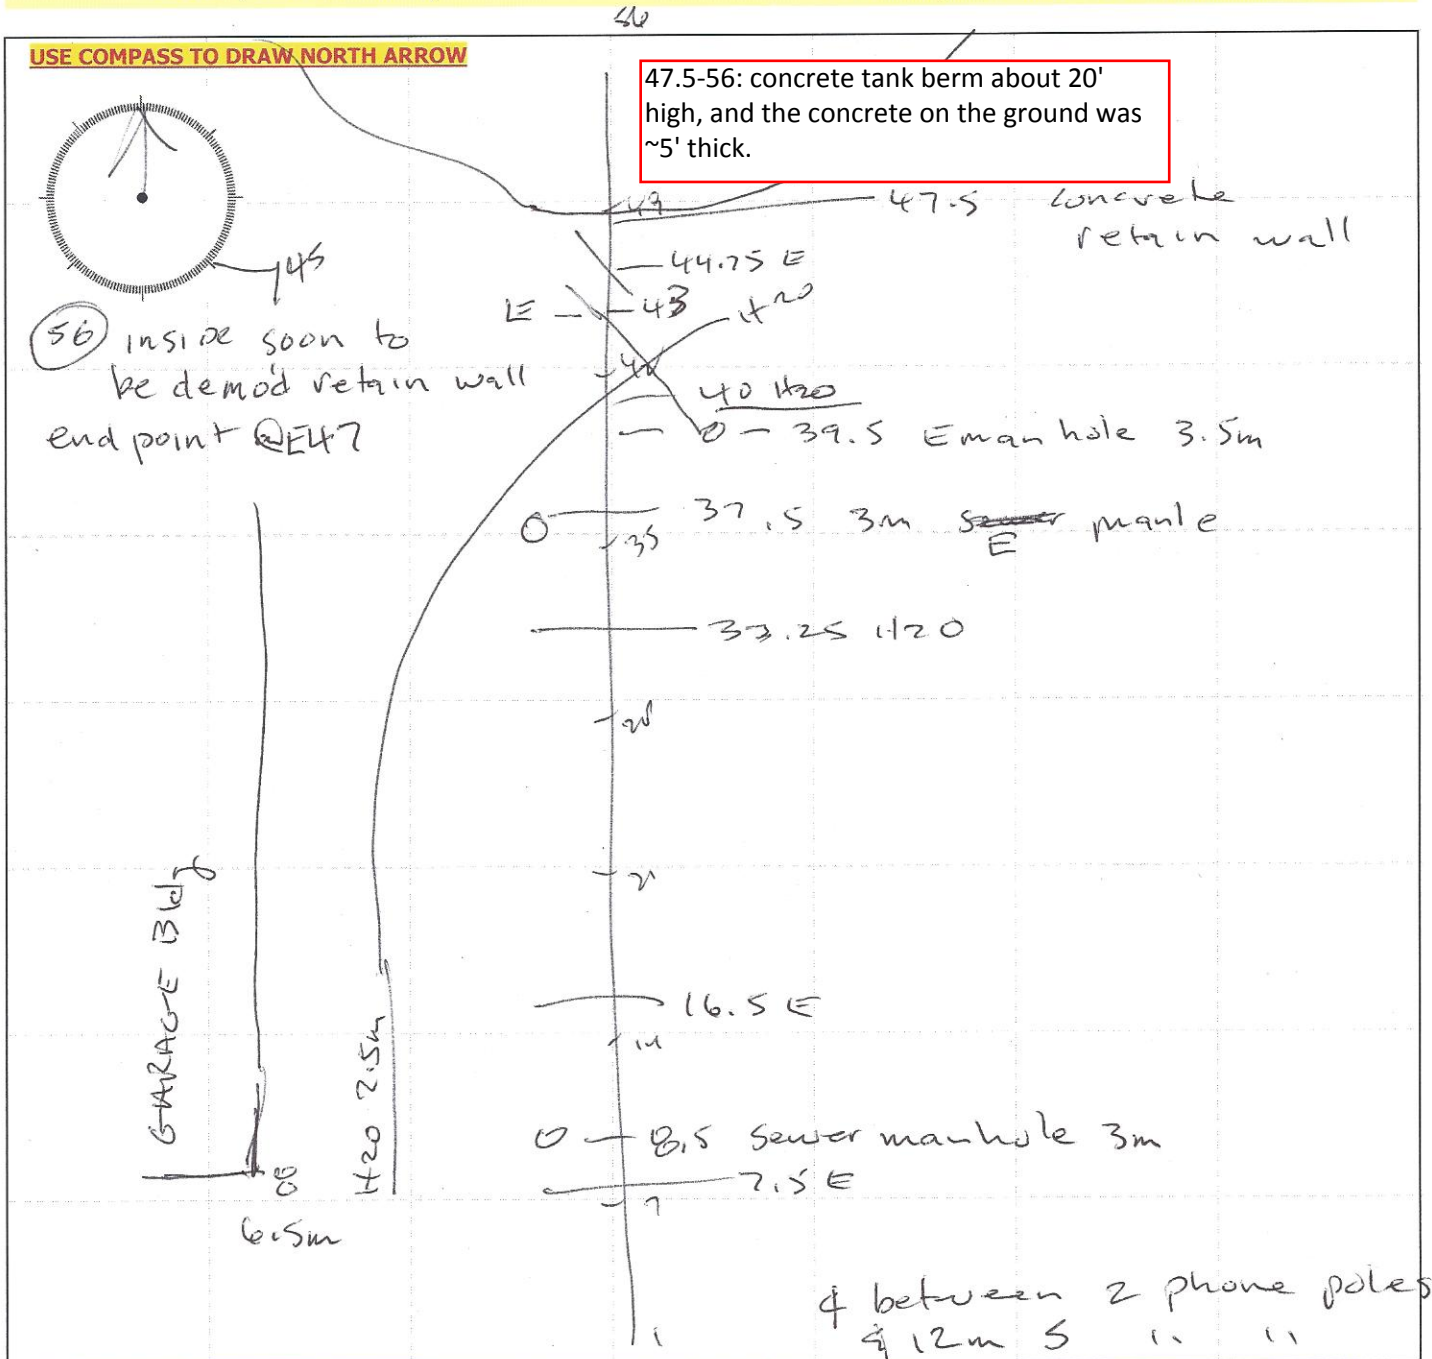 56
USE COMPASS TO DRAW NORTH ARROW
47.5-56: concrete tank berm about 20'
high, and the concrete on the ground was
~5' thick.
49
47.5 concrete
retain wall
44.75 E
145
E
43
H20
56 inside soon to
be demo'd retain wall
end point @E47
40 H20
39.5 E manhole 3.5m
37.5 3m E
35
33.25 H20
28
21
GARAGE Bldg
16.5 E
14
H20 2.5m
8.5 sewer manhole 3m
7.5 E
8
7
6.5m
between 2 phone poles
12m S " "
1